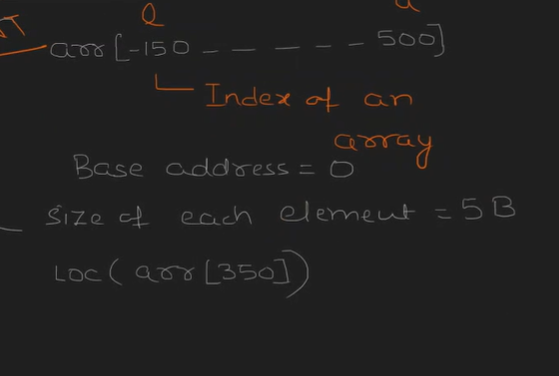 l u
arr[-150 - - - - - - - 500]
Index of an
array
Base address = 0
Size of each element = 5B
Loc(arr[350])